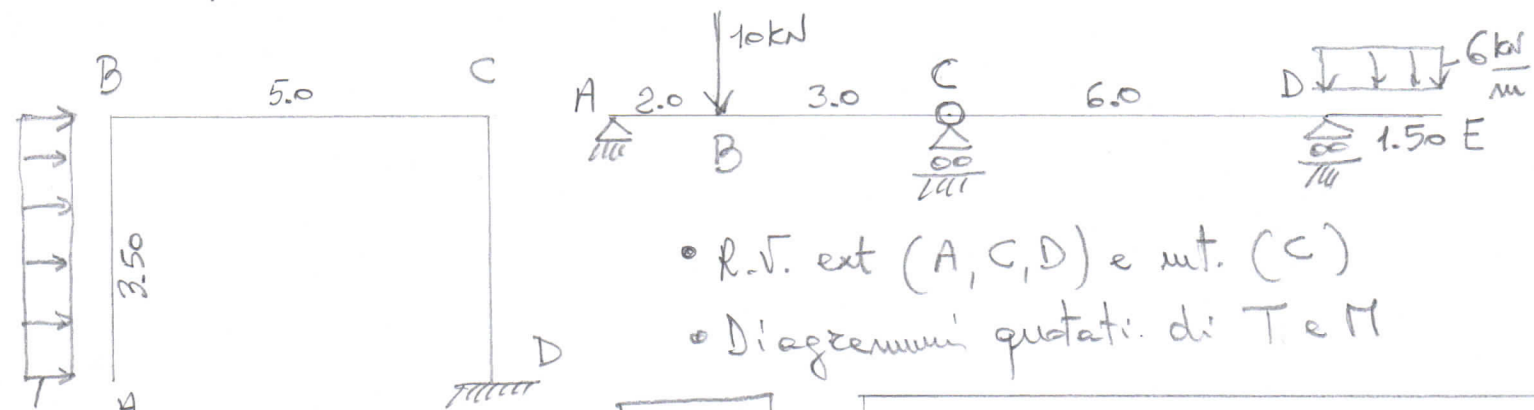 B 5.0 C
3.50
D
A
A 2.0 10kN 3.0 C 6.0 D 6 kN/m
B 1.50 E
• R.V. ext (A, C, D) e int. (C)
• Diagrammi quotati di T e M